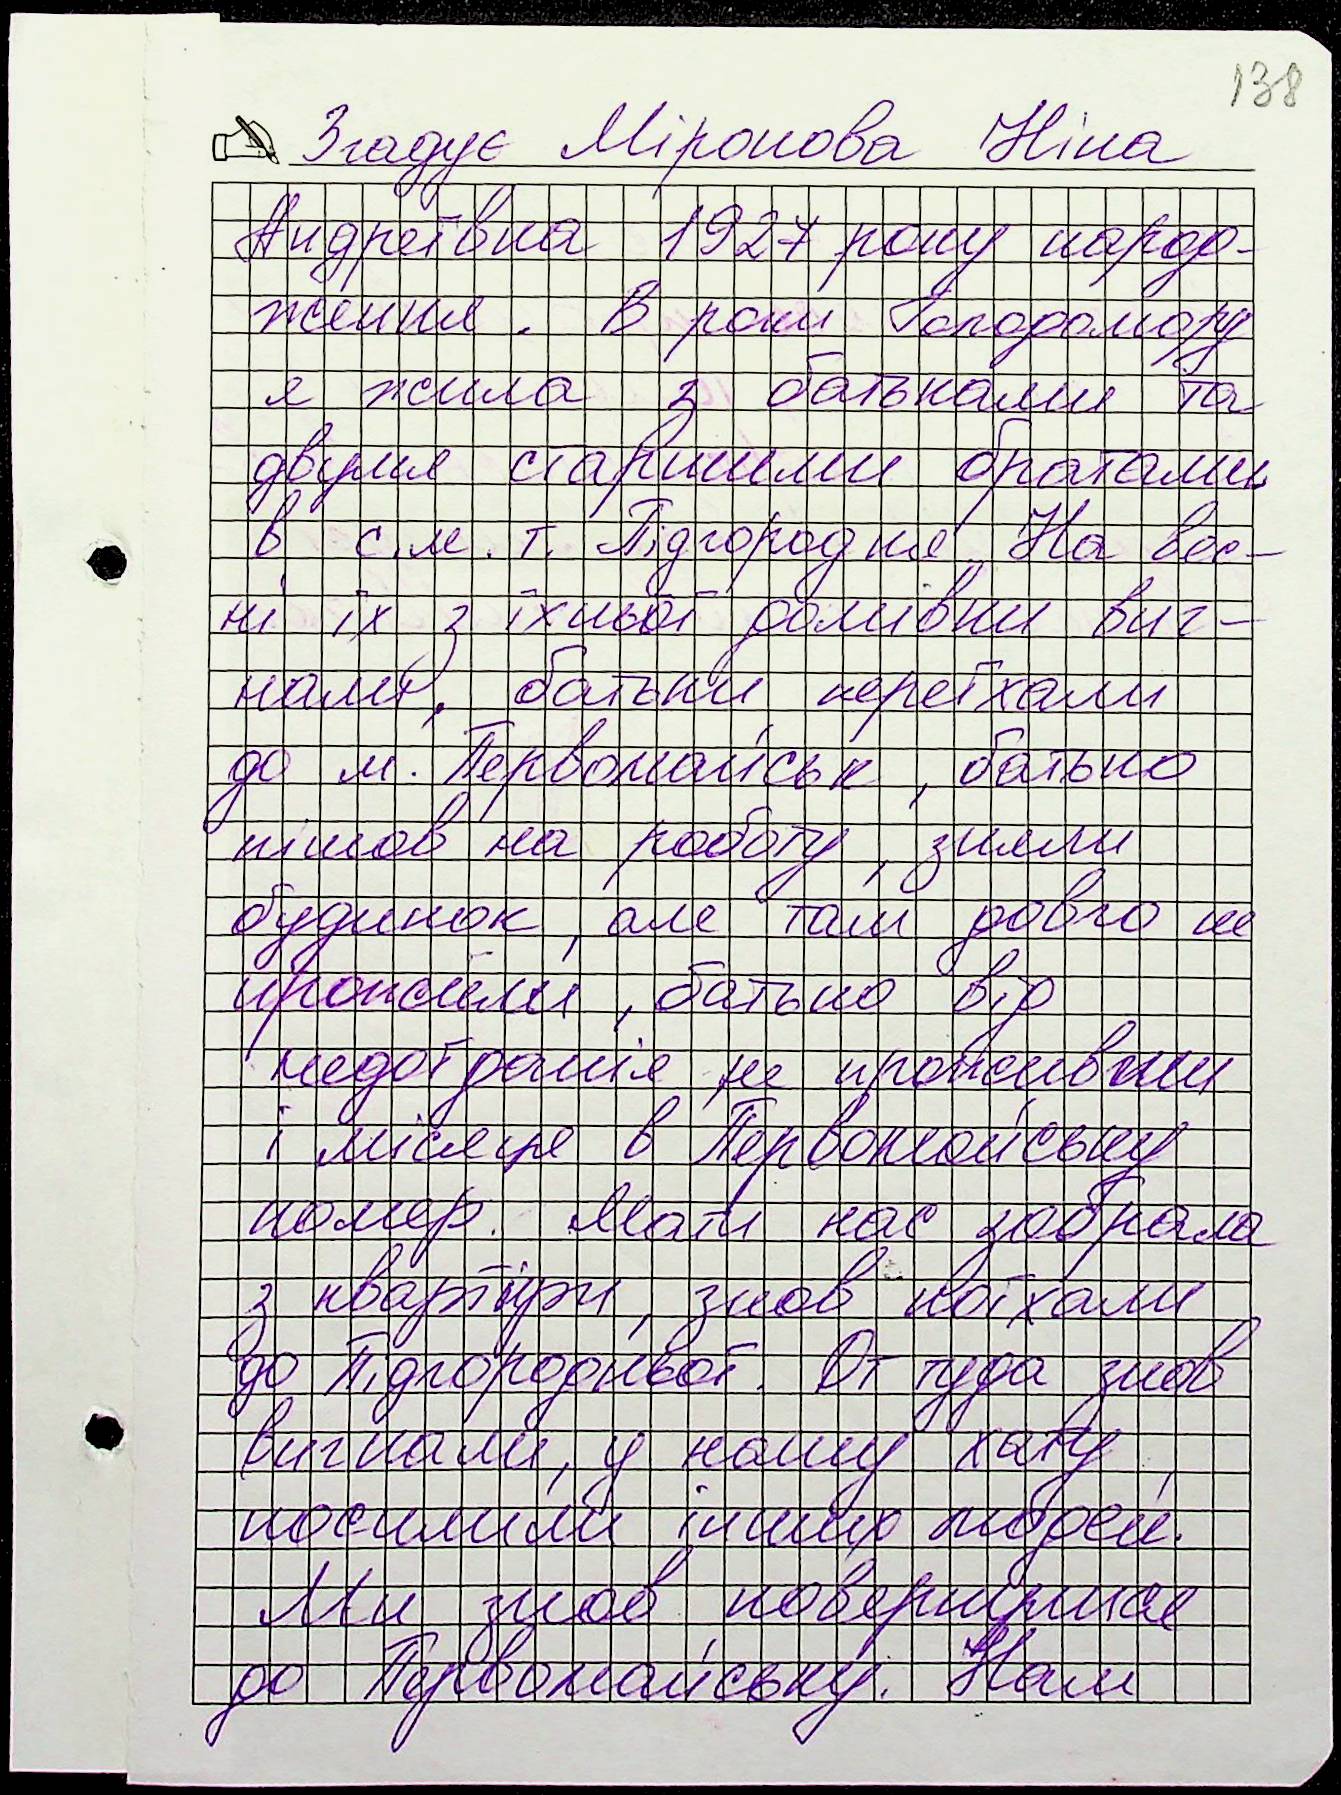 138
Згадує Міронова Ніна
Андреївна 1927 року народ-
ження. В роки Голодомору
я жила з батьками та
двумя старшими братами
в с.м.т. Підгородня На вес-
ні їх з їхньої домівки виг-
нали, батьки переїхали
до м. Первомайськ, батько
пішов на роботу, зняли
будинок, але там довго не
прожили, батько від
недоїдания не проживши
і місяця в Первомайську
помер. Мати нас забрала
з квартири, знов поїхали
до Підгородньої. От туда знов
вигнали, у нашу хату
поселили інших людей.
Ми знов повернулися
до Первомайську. Нам